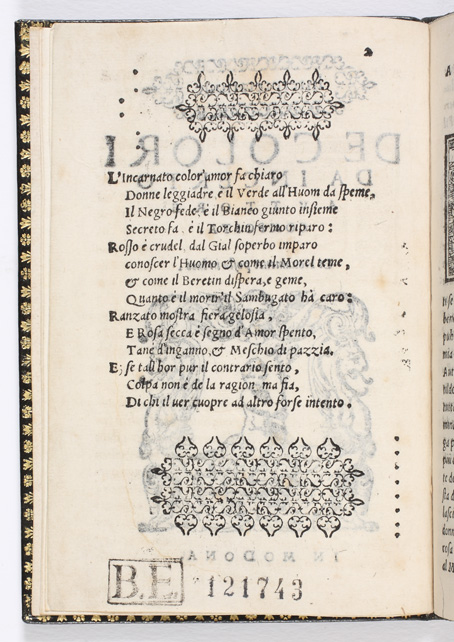 L'Incarnato color' amor fa chiaro
Donne leggiadre è il Verde all'Huom da speme,
Il Negro fede, è il Bianco giunto insieme
Secreto fa, è il Torchin fermo riparo:
Rosso è crudel, dal Gial soperbo imparo
conoscer l'Huomo & come il Morel teme,
& come il Beretin dispera, e geme,
Quanto è il morir' il Sambugato hà caro:
Ranzato mostra fiera gelosia,
E Rosa secca è segno d'Amor spento,
Tanè d'inganno, & Meschio di pazzia.
E; se tall'hor pur il contrario sento,
Colpa non è de la ragion, ma sia,
Di chi il uer cuopre ad altro forse intento.
B.E.
121743